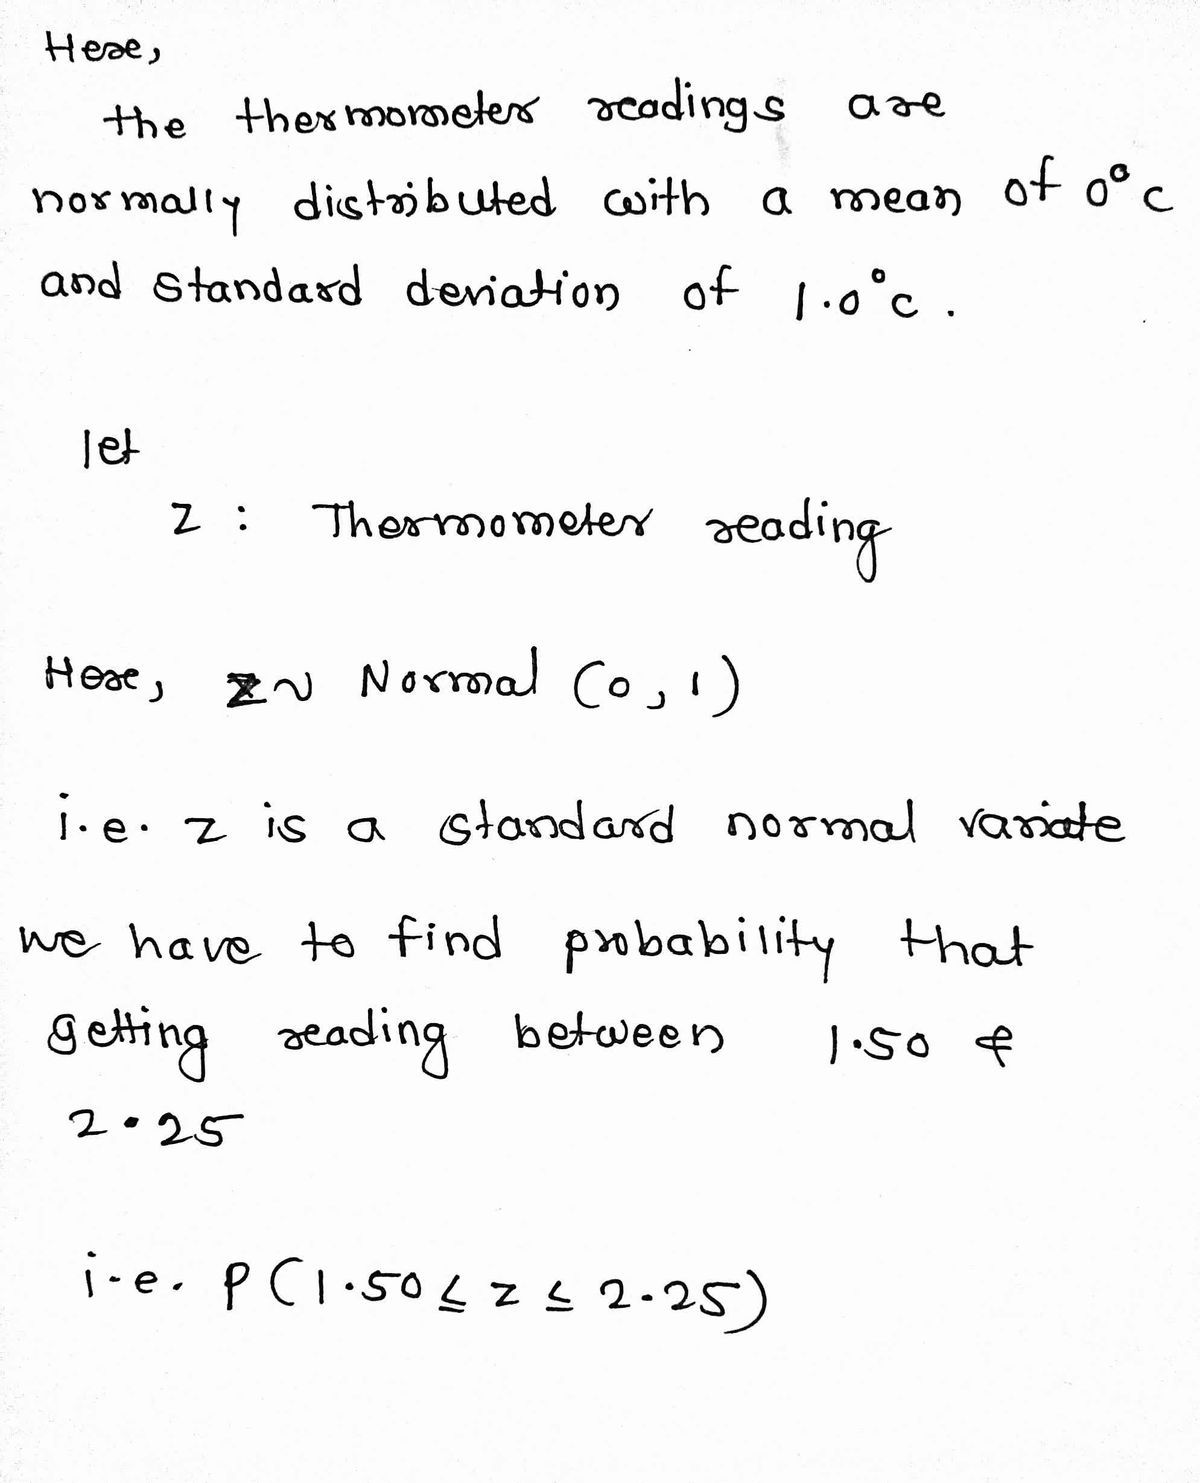 Here,
the thermometer readings are
normally distributed with a mean of 0°c
and standard deviation of 1.0°c.
let
z : Thermometer reading
Here, z ~ Normal (0,1)
i.e. z is a standard normal variate
we have to find probability that
getting reading between 1.50 &
2.25
i.e. P(1.50 ≤ z ≤ 2.25)